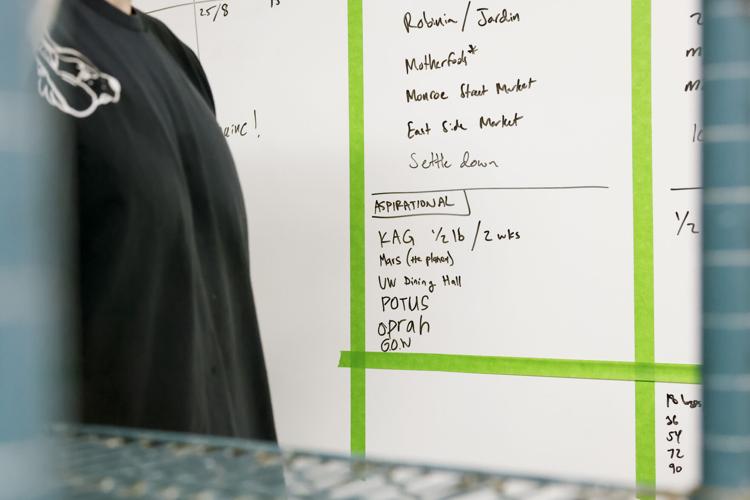 25/8
Robinia / Jardin
Motherfools*
Monroe Street Market
East Side Market
Settle down
ASPIRATIONAL
KAG 1/2 lb / 2 wks
Mars (the planet)
UW Dining Hall
POTUS
Oprah
G.O.N
1/2
36
54
72
90